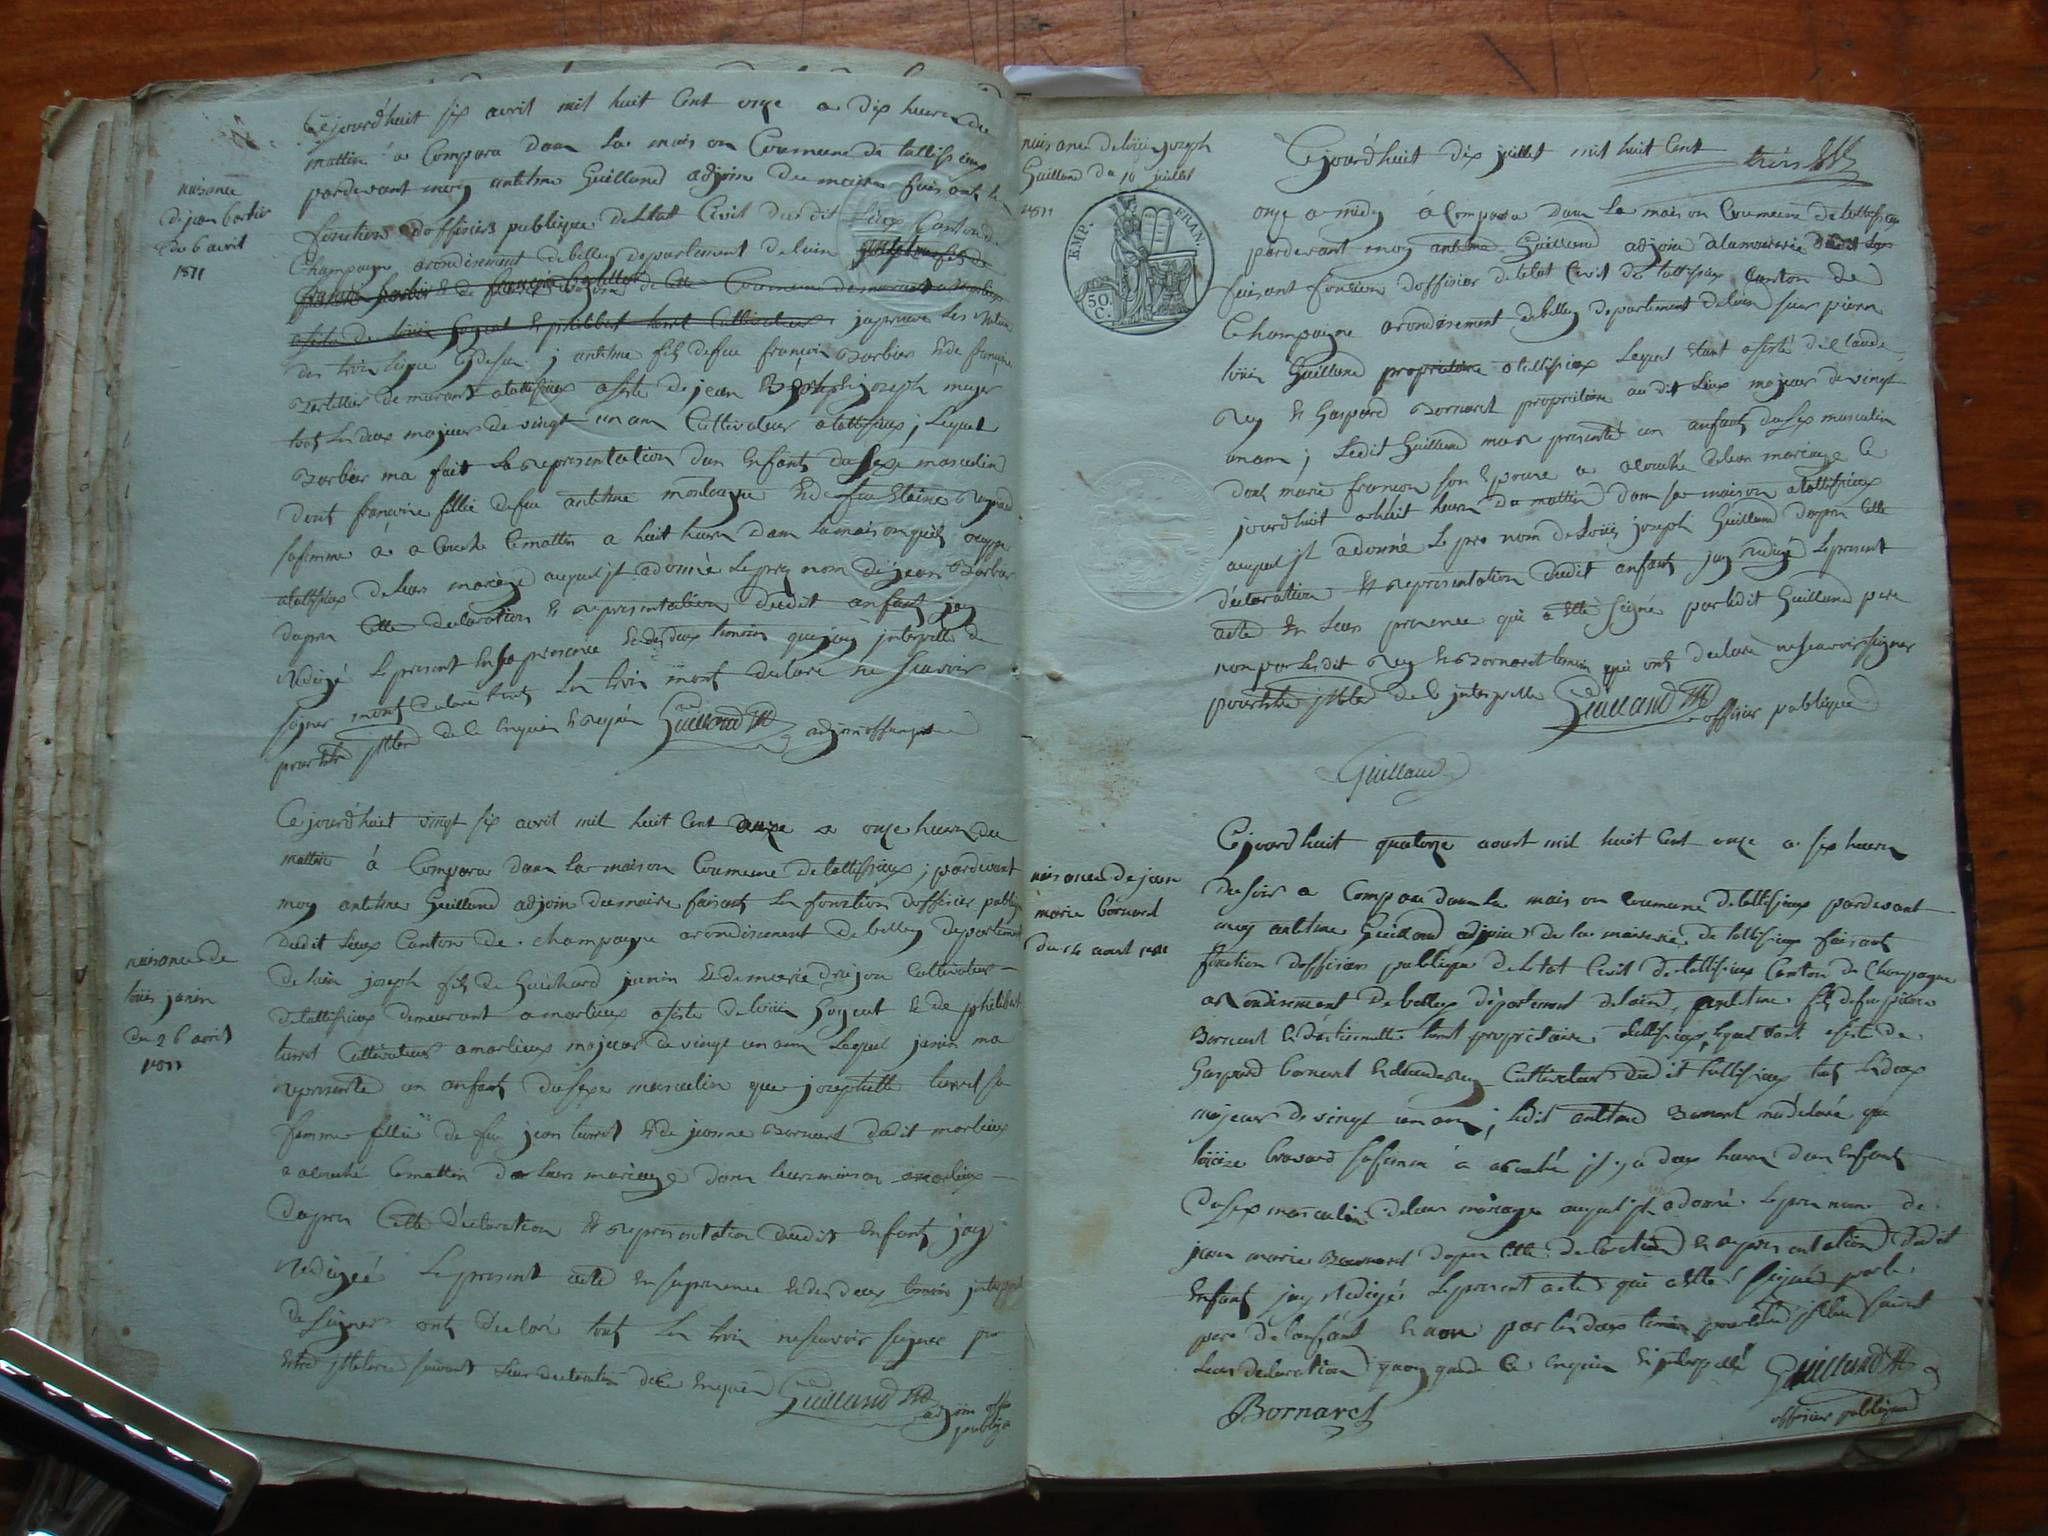 Cejourd'huit six avril mil huit Cent onze a dix heures du
mattin a Comparu dans la maison Commune de tallissieux
pardevant moy antelme Guilland adjoin du maire faisant le
fonction d'officiers publique de letat Civil dudit Lieux Canton de
Champagne arondisement de belley departement de lain
des trois ligne Cydesu ; antelme fils de feu françois Barbier & de françoise
demurant a tallissieux asisté de jean & joseph meyer
tout les deux majeurs de vingt un ans Cultivateur a tallissieux ; Lequel
Barbier ma fait la Representation dun Enfant du sexe masculin
dont françoise fillie de feu antelme montagne & de feu
sa femme a acouche Cemattin a huit heures dans la maison quil ocuppe
a tallissieux de leurs mariage auquel jl a donné le pre nom de jean Barbier
dapres Cette declaration & representation dudit anfant jay
Redigé le present En sa presence & des deux temoin que jay jnterpellé de
signer mont declaré tout les trois ne scavoir
Guilland
naisance
de jean barbier
du 6 avril
1811
Ce jourd'huit vingt six avril mil huit Cent onze a onze heures du
mattin à Comparu dans la maison Commune de tallissieux ; pardevant
moy antelme Guilland adjoin du maire faisant les fonction d'officier publique
dudit Lieux Canton de champagne arondisement de belley departement
de lain joseph fils de Guichard janin & de marie drujon Cultivateur
de tallissieux demeurant a marlieux asisté de loüis Goyout & de philibert
turrel Cultivateur a marlieux majeur de vingt un ans Lequel janin ma
representé un anfant du sexe masculin que josephette turrel sa
femme fillie de feu jean turrel & de jeanne Bornard dudit marlieux
a acouché Cemattin de leurs mariage dans leur maison a marlieux
dapres Cette déclaration & representation dudit Enfant jay
Redigéé le present acte En sa presence & des deux temoin jnterpellé
de signer ont déclaré tout les trois ne scavoir signer pour
suivant leur declaration de ce Enquis Guilland
adjoin offi
publique
naisance de
loüis janin
du 26 avril
1811
naisance de loüis joseph
Guilland du 10 juillet
1811
EMP. FRAN.
50.
C.
Cejourd'huit dix juillet mil huit Cent
trois
onze a midy à Comparu dans la maison Commune de tallissieux
pardevant moy antelme Guilland adjoin a la mairerie dudit lieu
faisant fonction d'offisier de letat Civil de tallissieux Canton de
Champagne arondisement de belley departement de lain sieur pierre
loüis Guilland propriétaire a tallissieux Lequel Etant asisté de Claude
Rey & Gaspard Bornaret propriétaire audit Lieux majeur de vingt
un ans ; Ledit Guilland ma presenté un anfant du sex masculin
dont marie françon son Epouse a acouché de leur mariage Ce
jourdhuit a huit heures du mattin dans sa maison a tallissieux
auquel jl a donné le pre nom de Loüis joseph Guilland dapres Cette
déclaration & representation dudit anfant jay Redigé le present
acte En leurs presence qui a Etté signé par ledit Guilland pere
non par lesdit Rey & Bornaret temoin qui ont declaré ne scavoir signer
de ce jnterpellé Guilland
offisier publique
Guilland
naisance de jean
marie bornard
du 14 aout 1811
Cejourdhuit quatorze aoust mil huit Cent onze a six heures
du soir a Comparu dans la maison Commune de tallissieux pardevant
moy antelme Guilland adjoin de la mairerie de tallissieux faisant
fonction d'offisiers publique de letat Civil de tallissieux Canton de Champagne
arondisement de belley département de lain, antelme fils de feu pierre
Bornaret & d'étiennette turel propriétaire a tallissieux, lequel étant asisté de
Gaspard bornaret & claude Rey Cultivateur dudit tallissieux tout les deux
majeur de vingt un ans ; ledit antelme Bornaret ma declaré que
loüise bravard sa femme à acouché jl y a deux heures dun Enfant
du sex masculin de leur mariage auquel jl a donné le pre nom de
jean marie Bornaret dapres Cette declaration & representation dudit
Enfant jay Redigés le present acte qui a Etté signés par le
pere de lanfant & non par les deux temoin suivant
leur declaration Enquis & jnterpellé Guilland
Bornaret
offisier publique